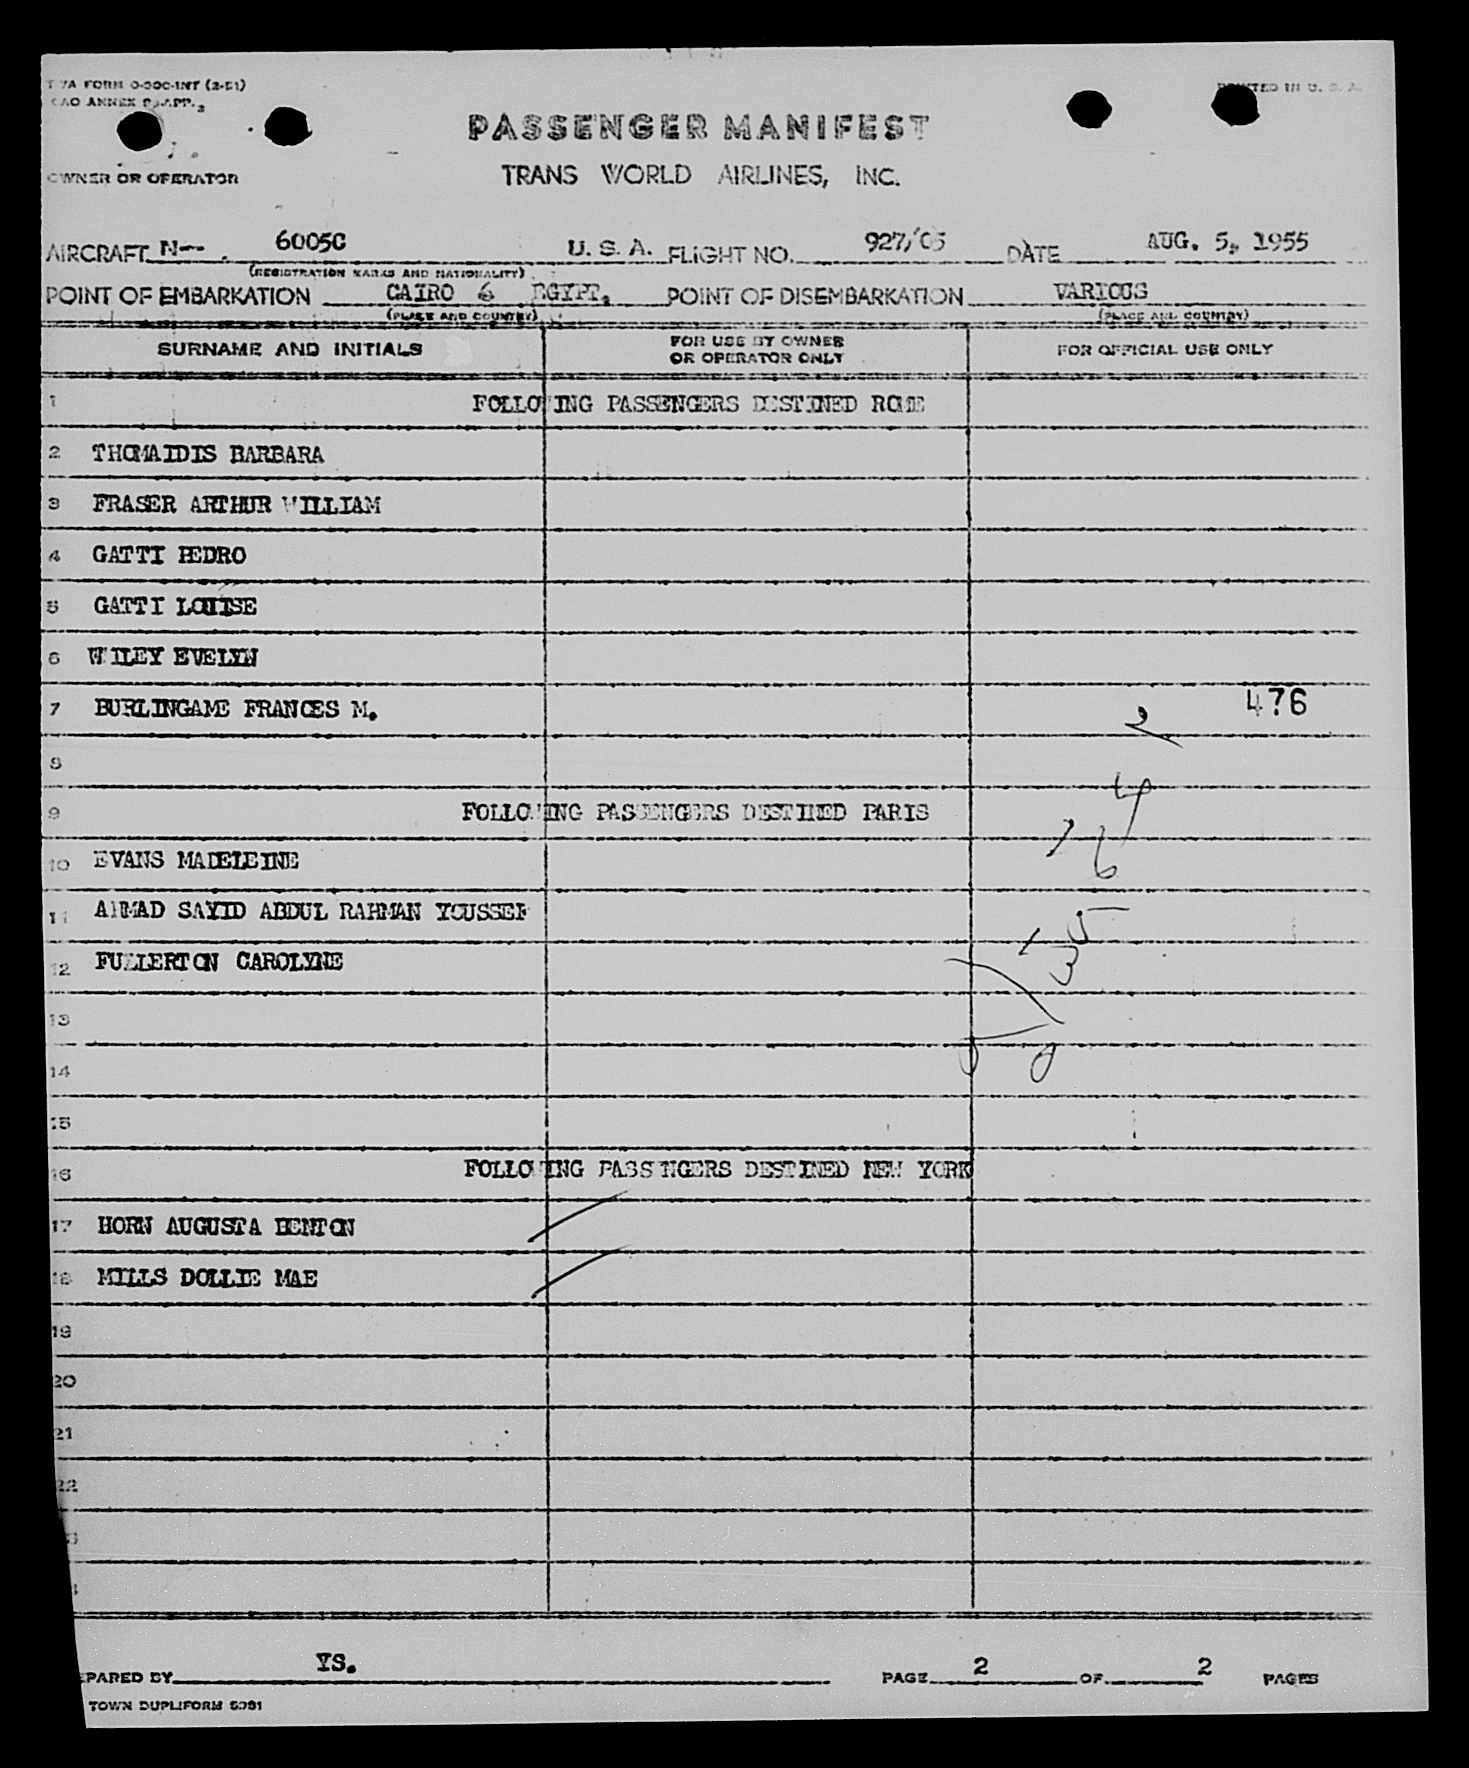 TWA FORM O-30C-INT (2-51)
PRINTED IN U. S. A.
ICAO ANNEX 9-APP. 2
PASSENGER MANIFEST
OWNER OR OPERATOR
TRANS WORLD AIRLINES, INC.
AIRCRAFT N-- 6005C U. S. A. FLIGHT NO. 927/05 DATE AUG. 5, 1955
(REGISTRATION MARKS AND NATIONALITY)
POINT OF EMBARKATION CAIRO 6 EGYPT. POINT OF DISEMBARKATION VARIOUS
(PLACE AND COUNTRY) (PLACE AND COUNTRY)
SURNAME AND INITIALS FOR USE BY OWNER OR OPERATOR ONLY FOR OFFICIAL USE ONLY
1 FOLLOWING PASSENGERS DESTINED ROME
2 THOMAIDIS BARBARA
3 FRASER ARTHUR WILLIAM
4 GATTI PEDRO
5 GATTI LOUISE
6 WILEY EVELYN
7 BURLINGAME FRANCES M. 476
8
9 FOLLOWING PASSENGERS DESTINED PARIS
10 EVANS MADELEINE
11 AHMAD SAYID ABDUL RAHMAN YOUSSEF
12 FULLERTON CAROLYNE
13
14
15
16 FOLLOWING PASSENGERS DESTINED NEW YORK
17 HORN AUGUSTA BENTON
18 MILLS DOLLIE MAE
19
20
21
22
PREPARED BY YS. PAGE 2 OF 2 PAGES
TOWN DUPLIFORM 5081